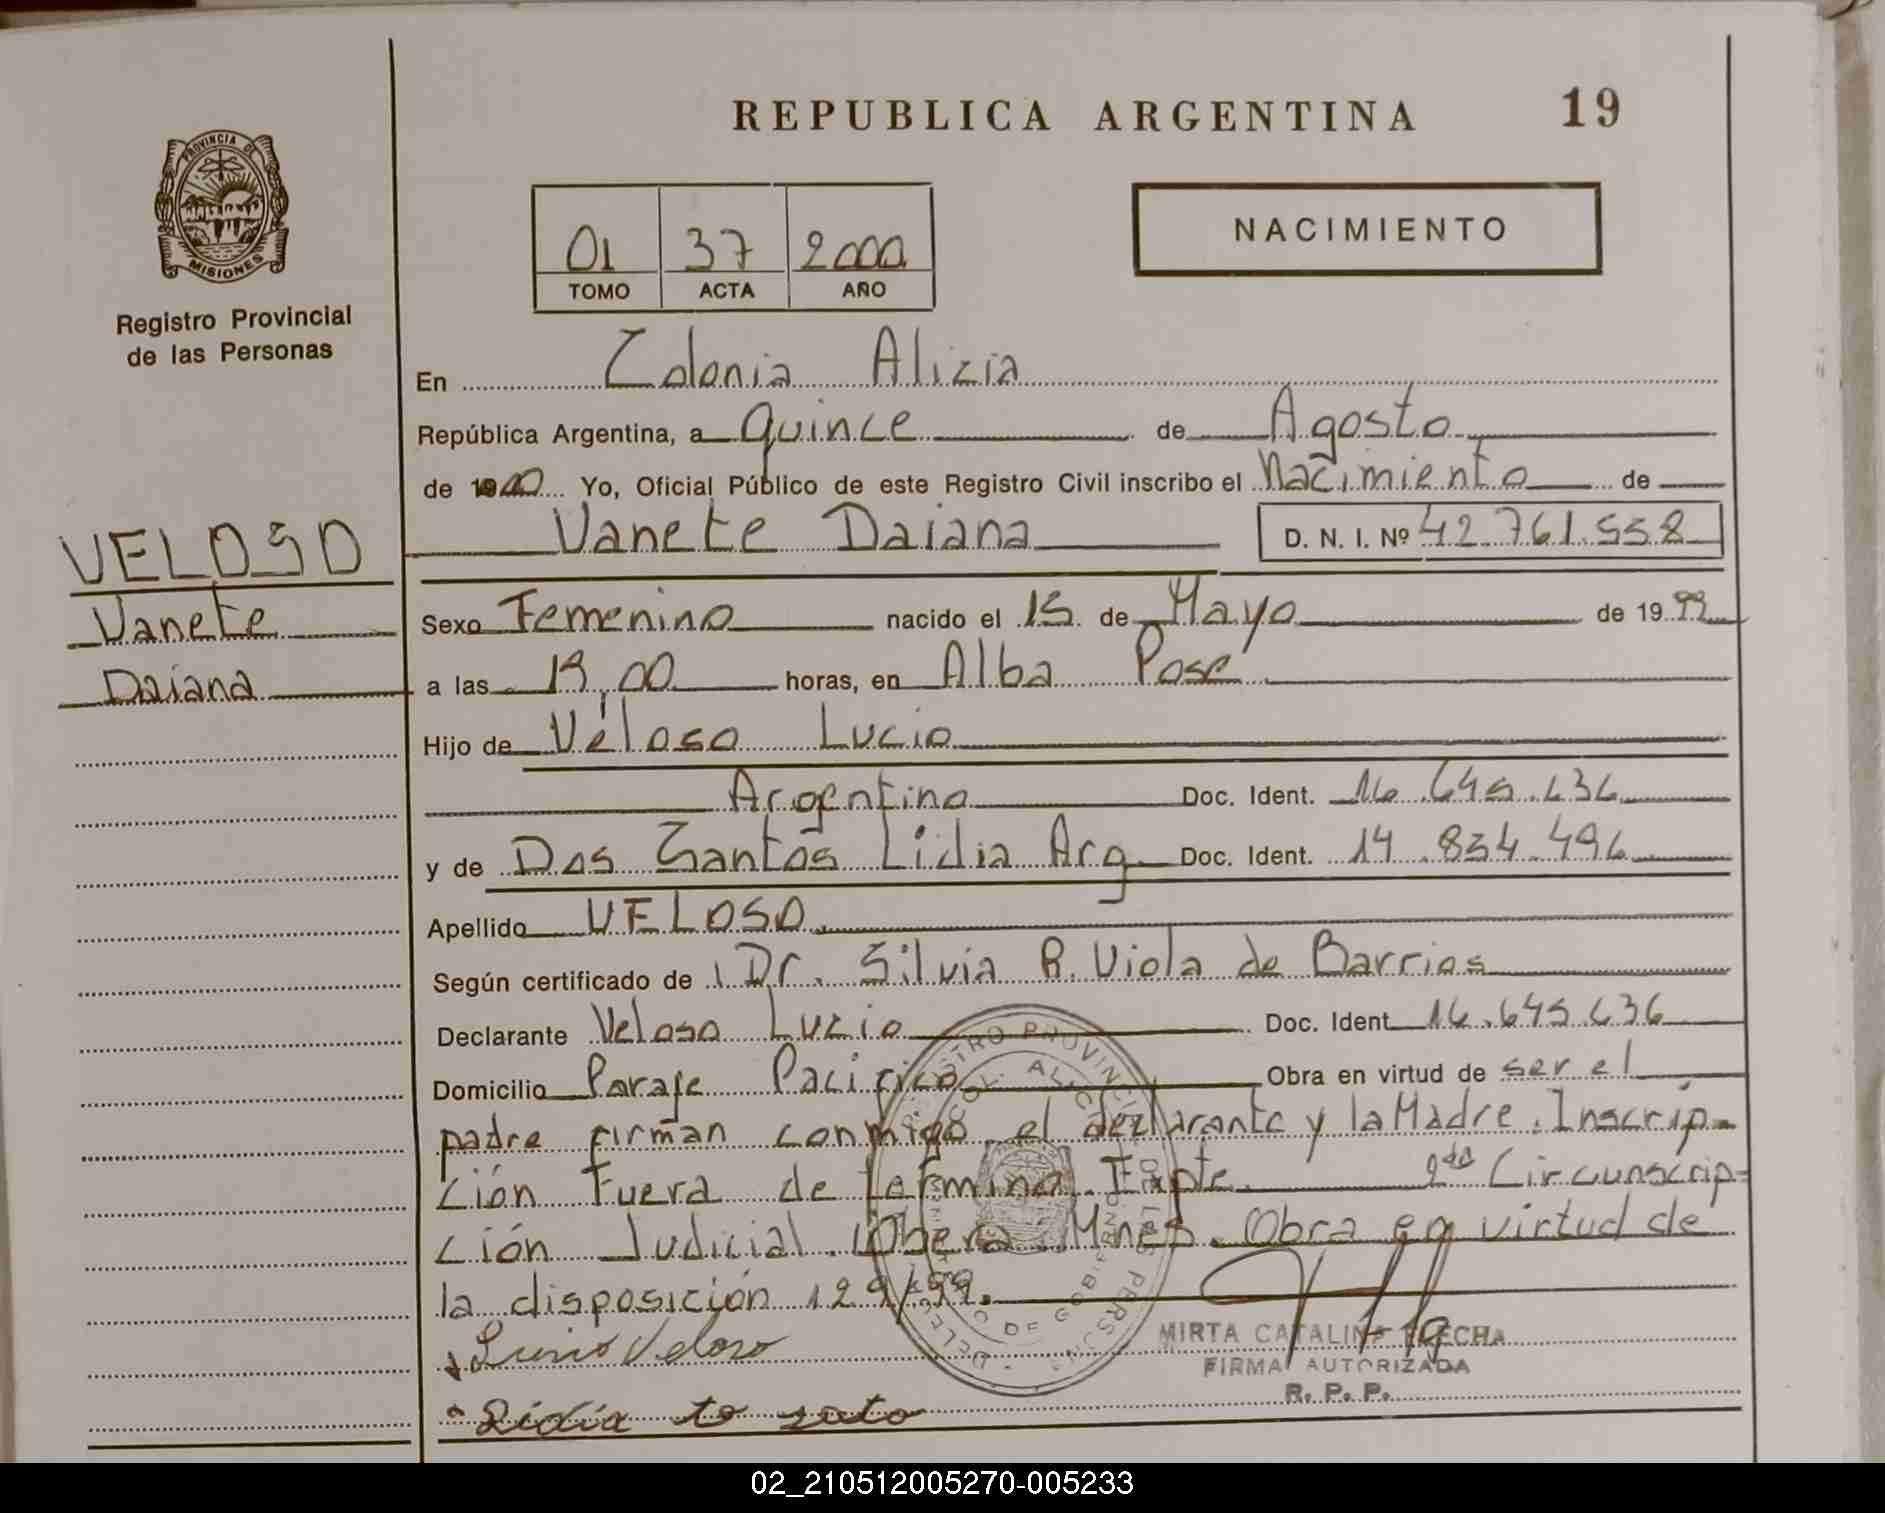 REPUBLICA ARGENTINA 19
PROVINCIA DE
MISIONES
Registro Provincial
de las Personas
NACIMIENTO
01 37 2000
TOMO ACTA AÑO
En Colonia Alicia
República Argentina, a quince de Agosto
de 1900 Yo, Oficial Público de este Registro Civil inscribo el Nacimiento de
Vanete Daiana D. N. I. Nº 42.761.558
VELOSO
Vanete
Daiana
Sexo Femenino nacido el 15 de Mayo de 1999
a las 13,00 horas, en Alba Pose
Hijo de Veloso Lucio
Argentino Doc. Ident. 16.645.636
y de Dos Santos Lidia Arg Doc. Ident. 14.834.496
Apellido VELOSO
Según certificado de Dr. Silvia R. Viola de Barrios
Declarante Veloso Lucio Doc. Ident 16.645.636
Domicilio Paraje Pacifico Obra en virtud de ser el
padre firman conmigo el declarante y la Madre. Inscrip-
ción Fuera de termino. 2da Circunscrip-
ción Judicial. Obera Mnes. Obra en virtud de
la disposición 129/99.
Lucio Veloso
MIRTA CATALINA
FIRMA AUTORIZADA
R. P. P.
Lidia
02_210512005270-005233